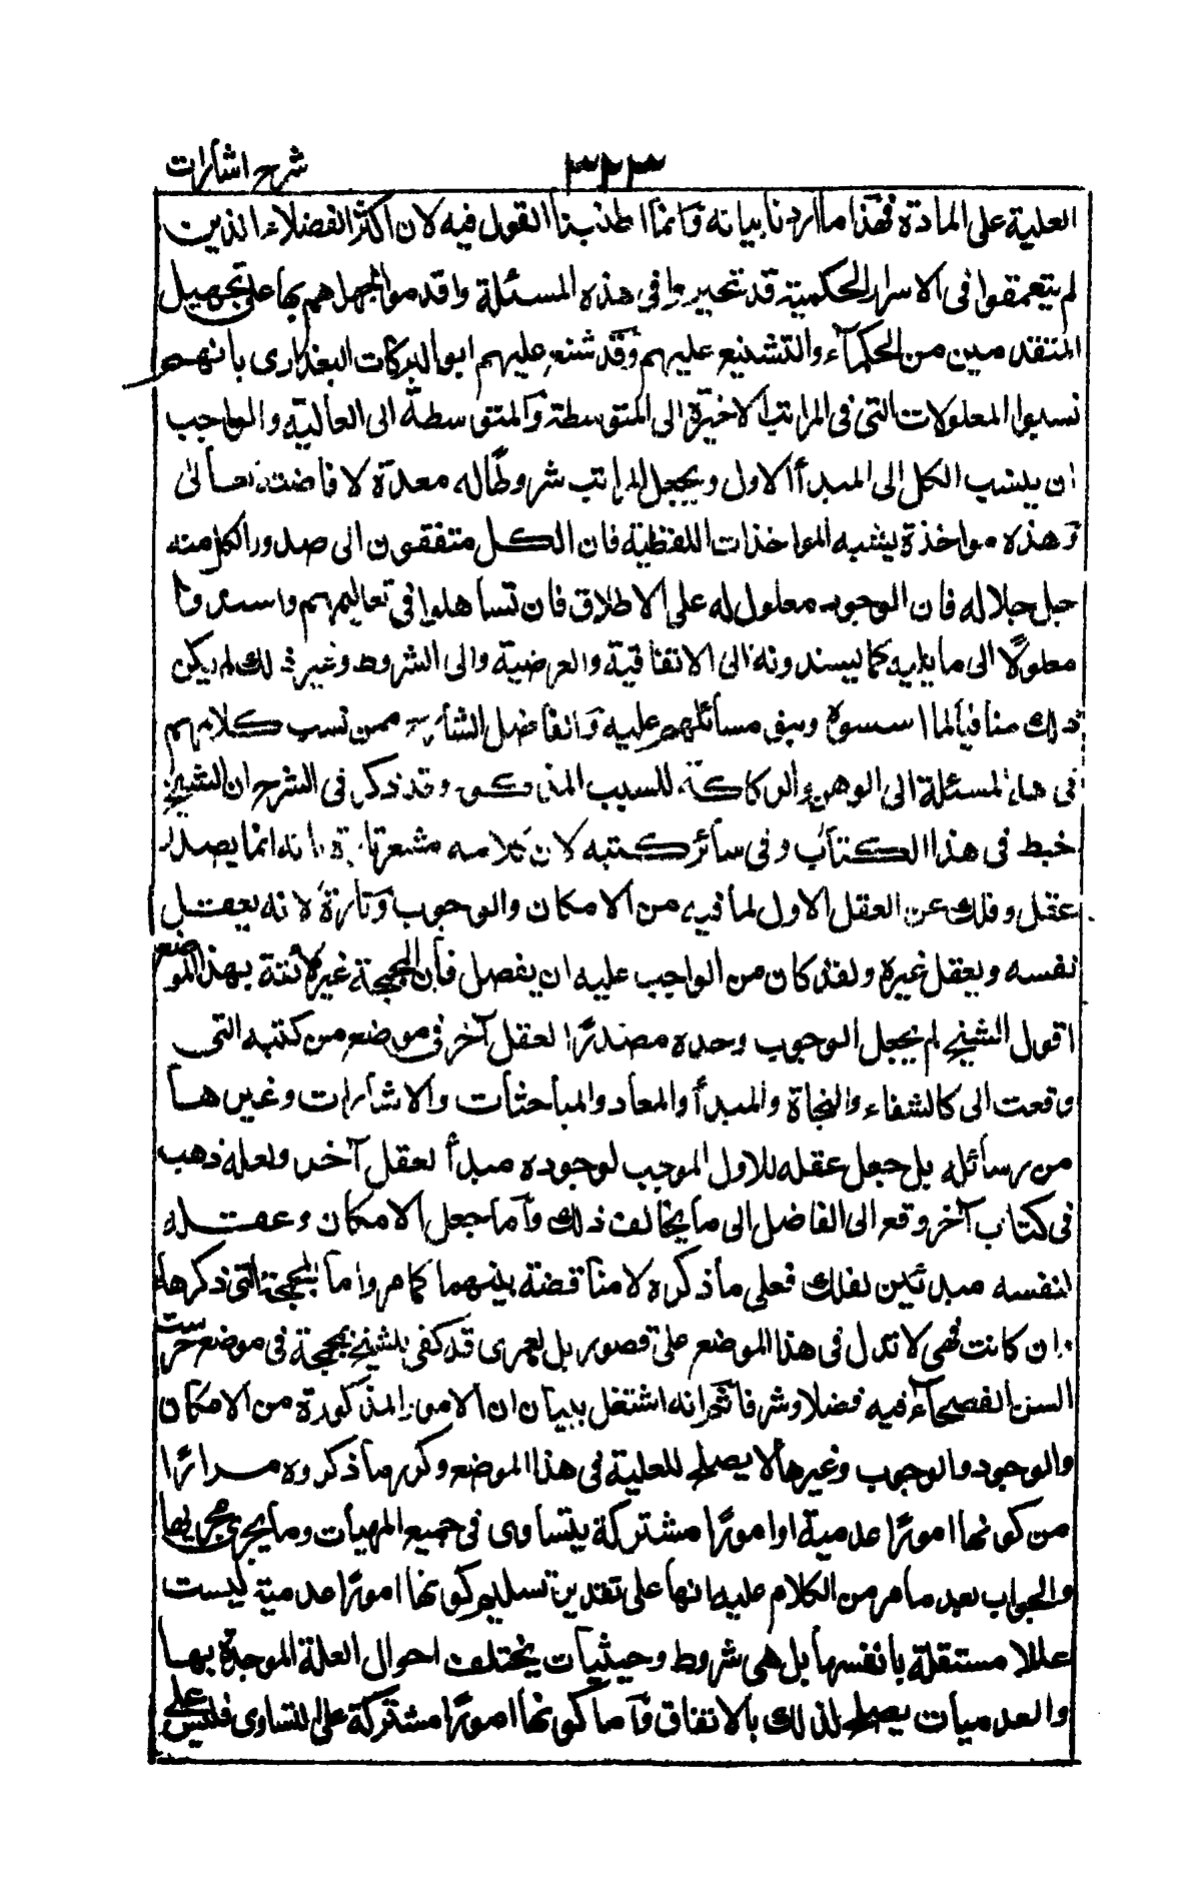 شرح اشارات
٣٢٣
العلية على المادة فهذا ما اردنا بيانه وانما اطنبنا القول فيه لان اكثر الفضلاء الذين
لم يتعمقوا فى الاسرار الحكمية قد تحيروا فى هذه المسئلة واقدموا لجهلهم بها على تجهيل
المتقدمين من الحكماء والتشنيع عليهم وقد شنع عليهم ابو البركات البغدادى بانهم
نسبوا المعلولات التى فى المراتب الاخيرة الى المتوسطة والمتوسطة الى العالية والواجب
ان ينسب الكل الى المبدأ الاول ويجعل المراتب شروطا له معدة لافاضته تعالى
وهذه مواخذة يشبه المواخذات اللفظية فان الكل متفقون الى صدور الكل منه
جل جلاله فان الوجود معلول له على الاطلاق فان تساهلوا فى تعاليمهم واسندوا
معلولا الى ما يليه كما يسندونه الى الاتفاقية والعرضية والى الشروط وغير ذلك لم يكن
ذلك منافيا لما اسسوه وبنو مسائلهم عليه والفاضل الشارح ممن نسب كلامهم
فى هذه المسئلة الى الوهن والركاكة للسبب المذكور وقد ذكر فى الشرح ان الشيخ
خبط فى هذا الكتاب وفى سائر كتبه لان كلامه مشعر تارة بانه انما يصدر
عقل وفلك عن العقل الاول لما فيه من الامكان والوجوب وتارة لانه يعقل
نفسه ويعقل غيره ولقد كان من الواجب عليه ان يفصل فان المجمجة غير لائقة بهذا الموضع
اقول الشيخ لم يجعل الوجوب وحده مصدرا لعقل آخر فى موضع من كتبه التى
وقعت الى كالشفاء والنجاة والمبدأ والمعاد والمباحثات والاشارات وغيرها
من رسائله بل جعل عقله للاول الموجب لوجوده مبدأ لعقل آخر ولعله ذهب
فى كتاب آخر وقع الى الفاضل الى ما يخالف ذلك واما جعل الامكان وعقله
لنفسه مبدئين لفلك فعلى ما ذكره لا مناقضة بينهما كما مر واما المجمجة التى ذكرها
وان كانت فهى لا تدل فى هذا الموضع على قصور بل لعمرى قد كفى بالشيخ بمجمجة فى موضع خرست
السن الفصحاء فيه فضلا وشرفا ثم انه اشتغل ببيان ان الامور المذكورة من الامكان
والوجود والوجوب وغيرها لا يصلح للعلية فى هذا الموضع وكرر ما ذكروه مرارا
من كونها امورا عدمية او امورا مشتركة يتساوى فى جميع المهيات وما يجرى مجريها
والجواب بعد ما مر من الكلام عليه انها على تقدير تسليم كونها امورا عدمية ليست
عللا مستقلة بانفسها بل هى شروط وحيثيات يختلف احوال العلة الموجدة بها
والعدميات يصلح لذلك بالاتفاق واما كونها امورا مشتركة على التساوى فليس على